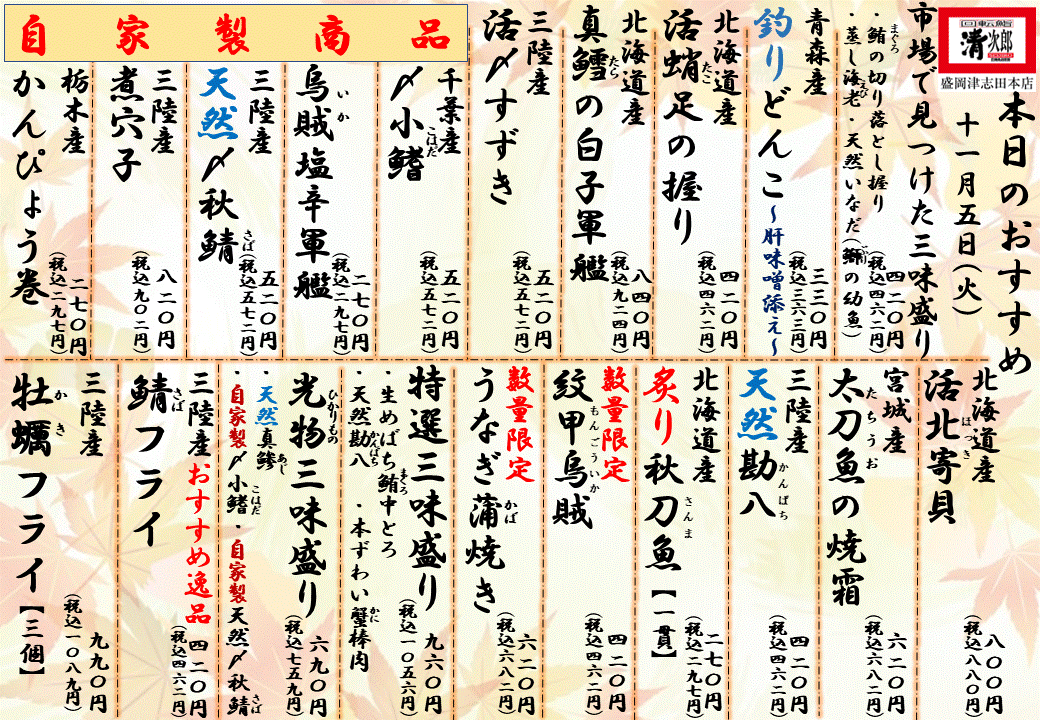 回転鮨
清次郎
盛岡津志田本店
本日のおすすめ
十一月五日(火)
市場で見つけた三味盛り
・鮪の切り落とし握り
まぐろ
・蒸し海老・天然いなだ(鰤の幼魚)
えび
四二〇円
(税込四六二円)
青森産
釣りどんこ~肝味噌添え~
三三〇円
(税込三六三円)
北海道産
活蛸足の握り
たこ
四二〇円
(税込四六二円)
北海道産
真鱈の白子軍艦
たら
八四〇円
(税込九二四円)
三陸産
活〆すずき
五二〇円
(税込五七二円)
自家製商品
千葉産
〆小鰭
こはだ
五二〇円
(税込五七二円)
烏賊塩辛軍艦
いか
二七〇円
(税込二九七円)
三陸産
天然〆秋鯖
さば
五二〇円
(税込五七二円)
三陸産
煮穴子
八二〇円
(税込九〇二円)
栃木産
かんぴょう巻
二七〇円
(税込二九七円)
北海道産
活北寄貝
ほっき
八〇〇円
(税込八八〇円)
宮城産
太刀魚の焼霜
たちうお
六二〇円
(税込六八二円)
三陸産
天然勘八
かんぱち
四二〇円
(税込四六二円)
北海道産
炙り秋刀魚【一貫】
さんま
二七〇円
(税込二九七円)
数量限定
紋甲烏賊
もんごういか
四二〇円
(税込四六二円)
数量限定
うなぎ蒲焼き
かば
六二〇円
(税込六八二円)
特選三味盛り
・生めばち鮪中とろ
まぐろ
・天然勘八
かんぱち
・本ずわい蟹棒肉
かに
九六〇円
(税込一〇五六円)
光物三味盛り
ひかりもの
・天然真鯵
あじ
・自家製〆小鰭・自家製天然〆秋鯖
こはだ
さば
六九〇円
(税込七五九円)
三陸産おすすめ逸品
鯖フライ
さば
四二〇円
(税込四六二円)
三陸産
牡蠣フライ【三個】
かき
九九〇円
(税込一〇八九円)